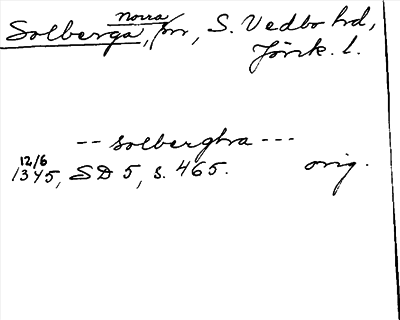 Solberga, norra, sn, S. Vedbo hd,
Jönk. l.
-- solbergha ---
12/6
1345, SD 5, s. 465. orig.